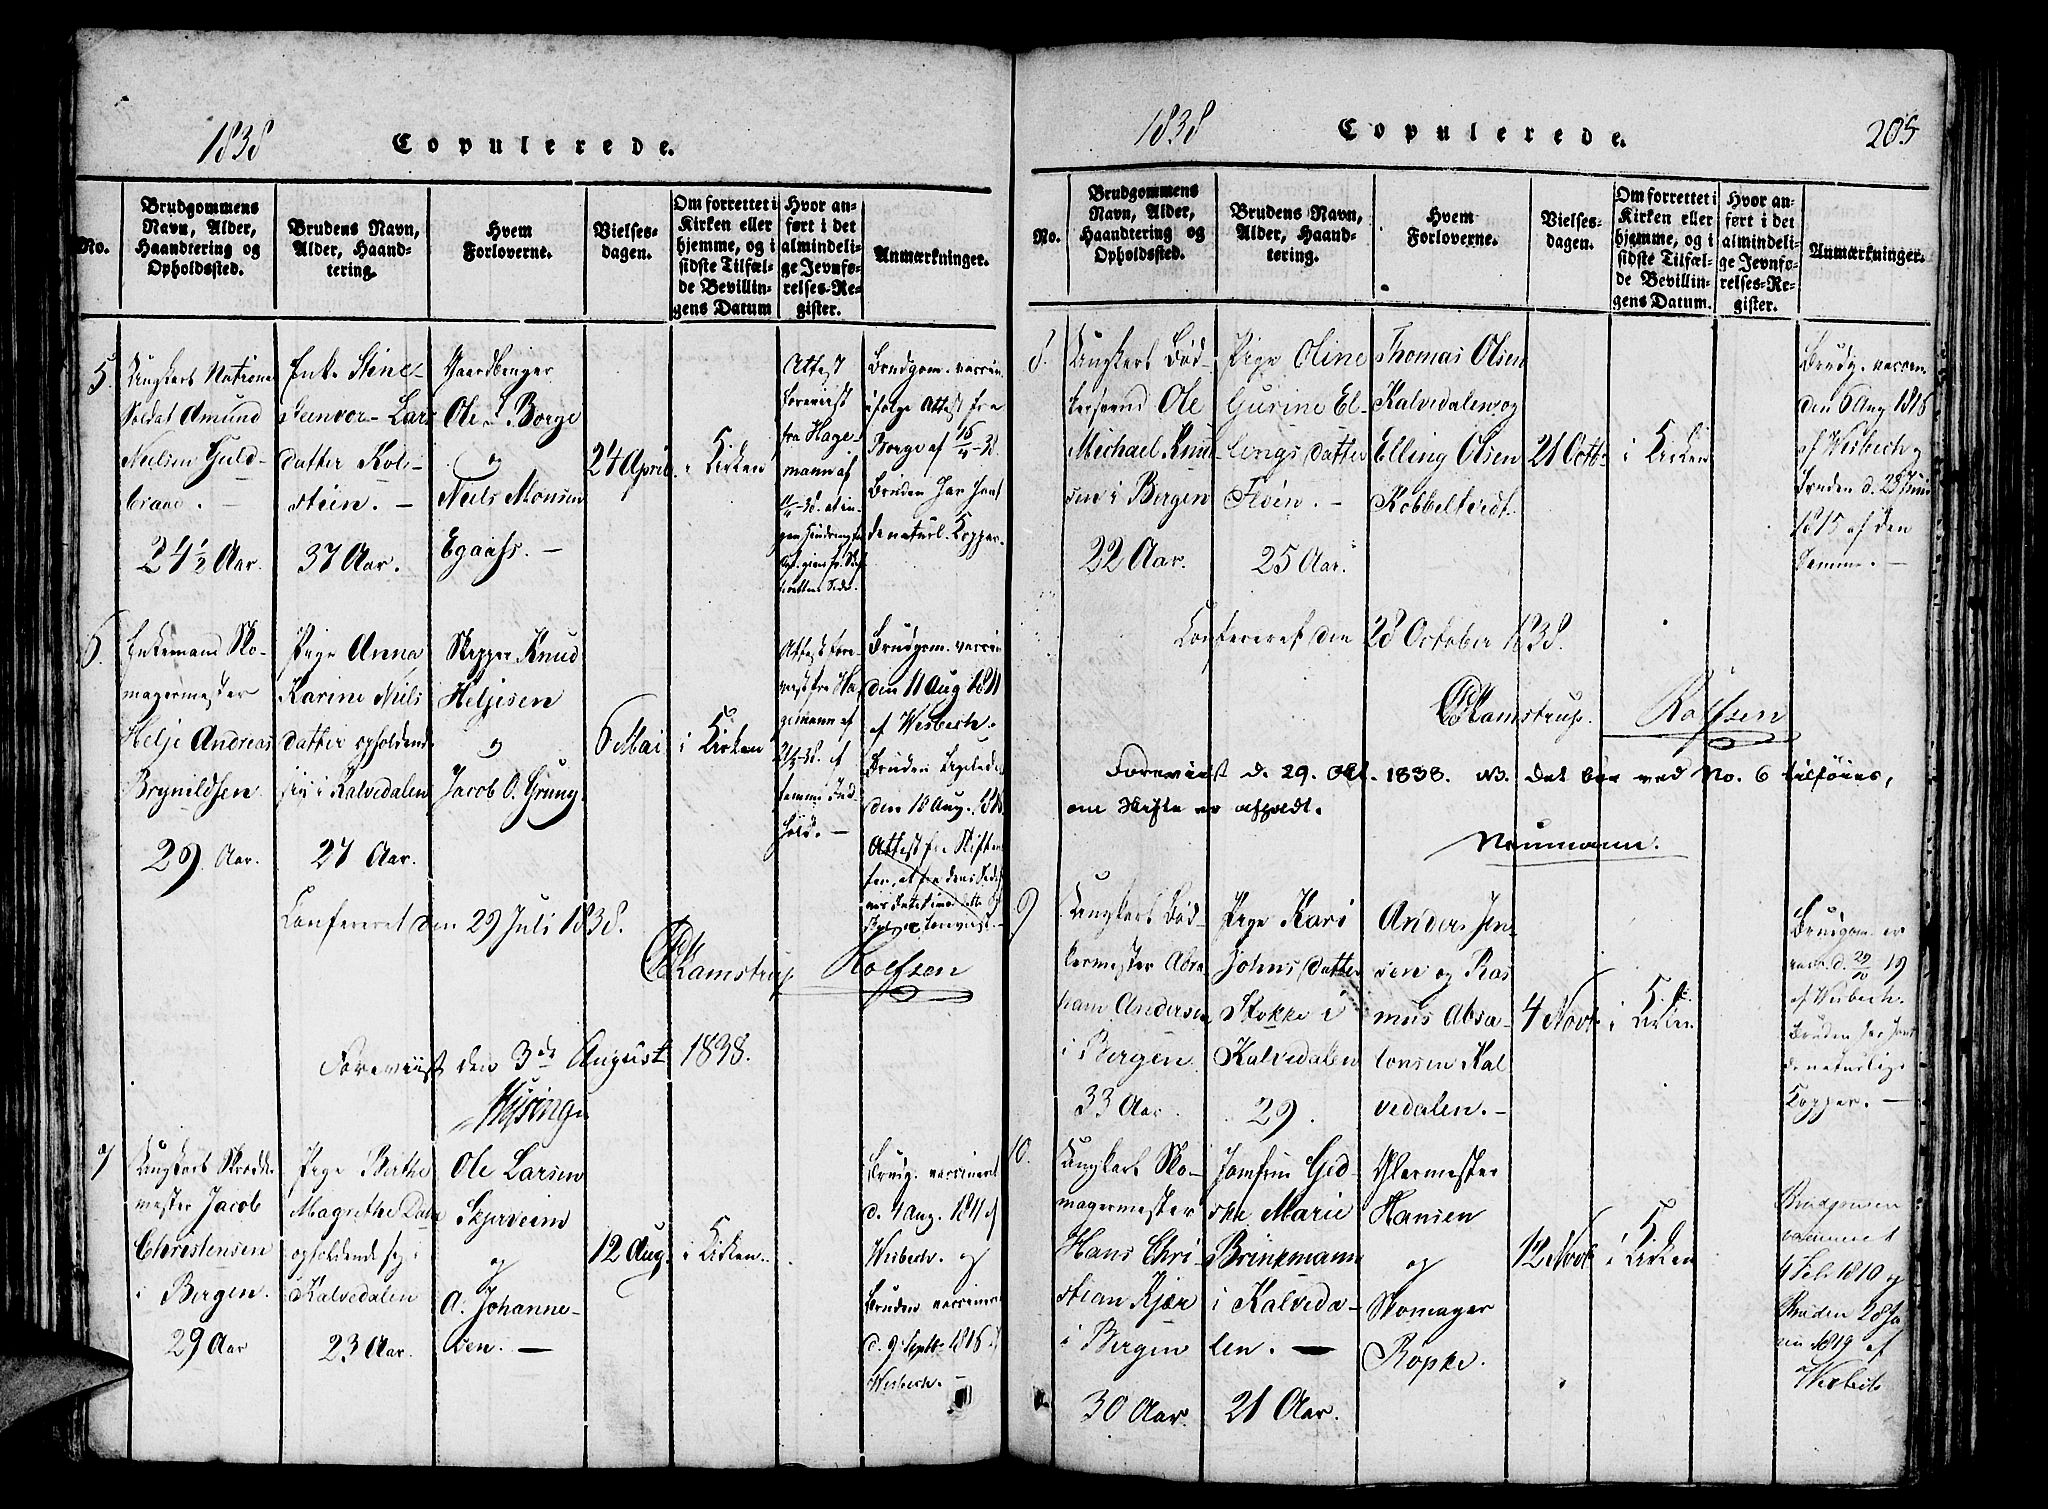 1838
Copulerede.
No.
Brudgommens
Navn, Alder,
Haandtering og
Opholdssted.
Brudens Navn,
Alder, Haand-
tering.
Hvem
Forloverne.
Vielses-
dagen.
Om forrettet i
Kirken eller
hjemme, og i
sidste Tilfæl-
de Bevillin-
gens Datum
Hvor an-
ført i det
almindeli-
ge Jevnfø-
relses-Re-
gister.
Anmærkninger.
5.
Ungkarl Nationa
Soldat Amund
Nielsen Guld-
braae. –
24½ Aar.
Enke Stine
Gunvor Lars
datter Kole
steen. –
37 Aar.
Gaardbruger
Ole S Borge
og
Niels Monsen
Egaas. –
24 April.
i Kirken
Attest
forevist
fra Hage-
mann af
Brudgom. vaccin.
ifølge Attest fra
Borge af
Bruden har havt
de naturl. Kopper.
6.
Enkemand Sko-
magermester
Helje Andreas
Brynildsen.
29 Aar.
Pige Anna
Karine Niels
datter opholdende
sig i Kalvedalen
27 Aar.
Skipper Knud
Heljesen
og
Jacob O. Grung
6 Mai
i Kirken
Attest fore-
vist fra Ha-
gemann af
samme Ind
hold. –
Brudgom. vaccin
den 11 Aug 1811
af Wesbech.
Bruden ligeledes
den 18 Aug.
Attest fra Skiften
Confereret den 29 Juli 1838.
Kamstrup Rolfsen
Foreviist den 3de August 1838.
7
Ungkarl Skrædder
mester Jacob
Christensen
i Bergen.
29 Aar
Pige Birthe
Magrethe Dahl
opholdende sig i
Kalvedalen
23 Aar.
Ole Larsen
Skjerveim
og
A. Johanne-
sen. –
12 Aug.
i Kirken.
Brudg. vaccineret
d. 4 Aug. 1811 af
Wesbech. og
Bruden vaccineret
d. 9 Septb. 1816 af
Wesbech. –
1838
Copulerede.
205
No.
Brudgommens
Navn, Alder,
Haandtering og
Opholdssted.
Brudens Navn,
Alder, Haand-
tering.
Hvem
Forloverne.
Vielses-
dagen.
Om forrettet i
Kirken eller
hjemme, og i
sidste Tilfæl-
de Bevillin-
gens Datum.
Hvor an-
ført i det
almindeli-
ge Jevnfø-
relses-Re-
gister.
Anmærkninger.
8.
Ungkarl Bød-
kersvend Ole
Michael Knud
sen i Bergen
22 Aar.
Pige Oline
Gurine El-
lings datter
Fløen. –
25 Aar.
Thomas Olsen
Kalvedalen og
Elling Olsen
Kobbeltvedt.
21 Octb.
i Kirken
Brudg. vaccin.
den 6 Aug 1816
af Wesbech og
Bruden d. 23 Juni
1815 af den
Samme. –
Confereret den 28 October 1838.
Kamstrup. Rolfsen
Foreviist d. 29. Oct. 1838. NB. Det bør ved No. 6 tilføies,
om Skifte er afholdt.
Neumann.
9
Ungkarl Bød-
kermester Abra
ham Andersen
i Bergen
33 Aar.
Pige Kari
Johns datter
Stokke i
Kalvedalen
29.
Anders Jen-
sen og Ras
mus Absa-
lonsen Kal
vedalen. –
4 Novb
i Kirken
Brudgom. er
vacc. d. 29/10 19
af Wesbech.
Bruden har havt
de naturlige
Kopper. –
10.
Ungkarl Sko-
magermester
Hans Chri-
stian Kjær
i Bergen
30 Aar.
Jomfru Ged-
ske Marie
Brinkmann
i Kalveda-
len. –
21 Aar.
Glarmester
Hansen
og
Skomager
Röpke.
12 Novb
i Kirken
Brudgommen
vaccineret
4 Feb 1810 og
Bruden 28 Ja
nu 1819 af
Wesbech